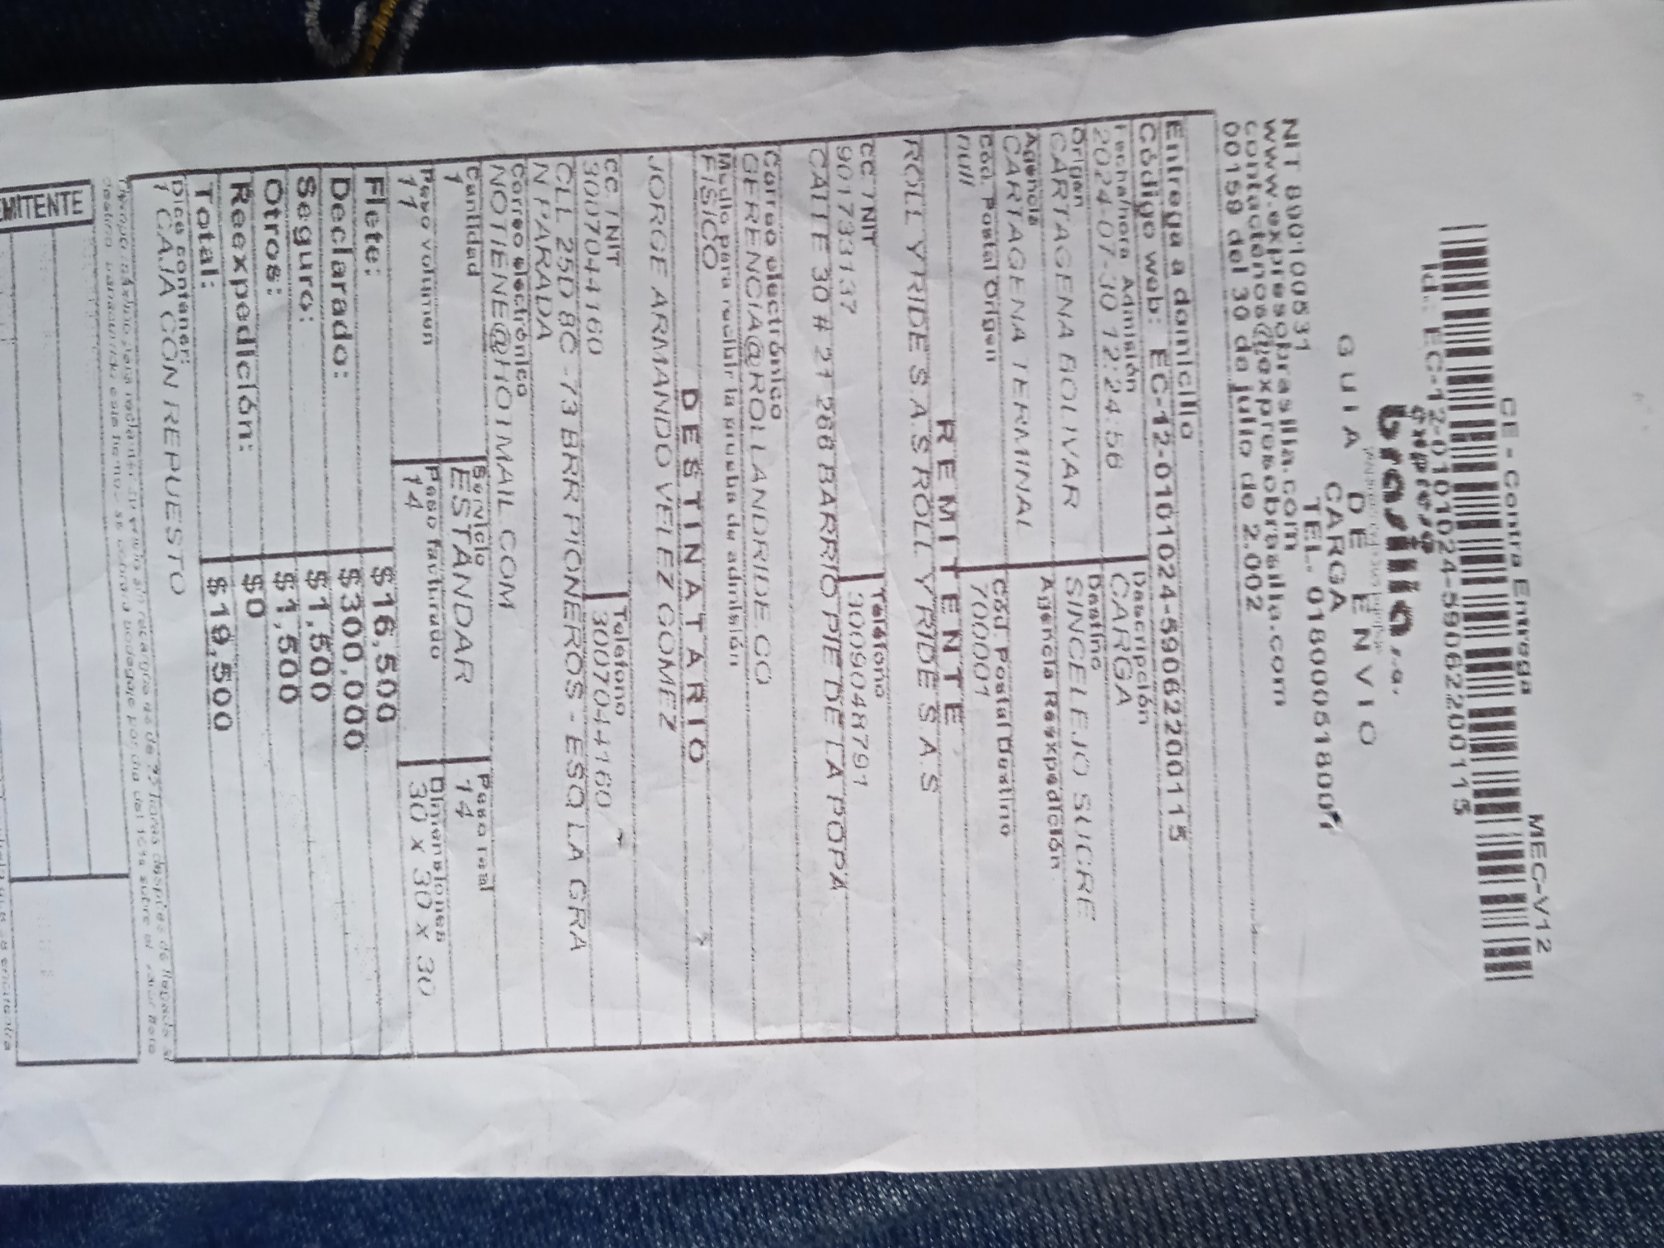 MEC-V12
CE - Contra Entrega
Id.: EC-12-0101024-59062200115
expreso
brasilia s.a.
GUIA DE ENVIO
CARGA
TEL. 018000518001
NIT 890100531
www.expresobrasilia.com
contactenos@expresobrasilia.com
00159 del 30 de julio de 2.002
Entrega a domicilio
Código web: EC-12-0101024-59062200115
Fecha/hora Admisión
Descripción
2024-07-30 12:24:56
CARGA
Origen
Destino
CARTAGENA BOLIVAR
SINCELEJO SUCRE
Agencia
Agencia Reexpedición
CARTAGENA TERMINAL
Cód. Postal Origen
Cód. Postal Destino
null
700001
REMITENTE
ROLL Y RIDE S A.S ROLL Y RIDE S A.S
CC / NIT
Teléfono
901733137
3009048791
CALLE 30 # 21 286 BARRIO PIE DE LA POPA
Correo electrónico
GERENCIA@ROLLANDRIDE.CO
Medio para recibir la prueba de admisión
FÍSICO
DESTINATARIO
JORGE ARMANDO VELEZ GOMEZ
CC / NIT
Teléfono
3007044160
3007044160
CLL 25D 8C -73 BRR PIONEROS - ESQ LA GRA
N PARADA
Correo electrónico
NOTIENE@HOTMAIL.COM
Cantidad
Servicio
Peso real
1
ESTÁNDAR
14
Peso volumen
Peso facturado
Dimensiones
11
14
30 x 30 x 30
Flete: $16,500
Declarado: $300,000
Seguro: $1,500
Otros: $1,500
Reexpedición: $0
Total: $19,500
Dice contener:
1 CAJA CON REPUESTO